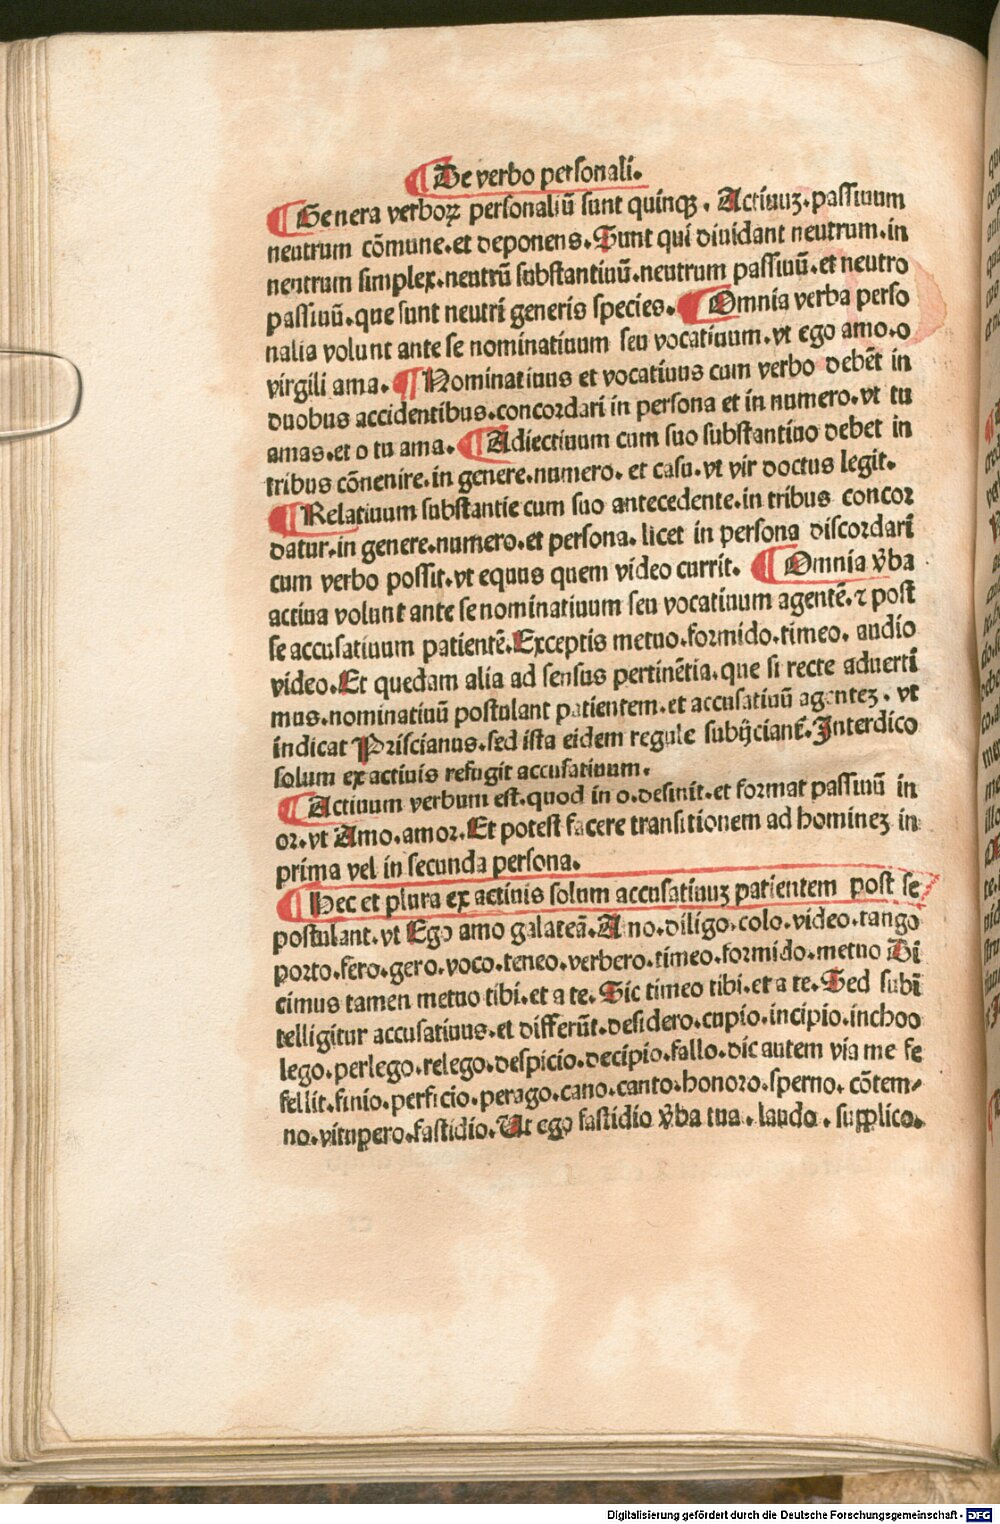 ¶ De verbo personali.
¶ Genera verboꝝ personaliū sunt quinqꝫ. Actiuuꝫ.passiuum
neutrum cōmune.et deponens.Sunt qui diuidant neutrum.in
nentrum simplex.neutrū substantiuū.neutrum passiuū.et neutro
passiuū.que sunt neutri generis species. ¶ Omnia verba perso
nalia volunt ante se nominatiuum seu vocatiuum.vt ego amo.o
virgili ama. ¶ Nominatiuus et vocatiuus cum verbo debēt in
duobus accidentibus.concordari in persona et in numero.vt tu
amas.et o tu ama. ¶ Adiectiuum cum suo substantiuo debet in
tribus cōnenire.in genere.numero. et casu.vt vir doctus legit.
¶ Relatiuum substantie cum suo antecedente.in tribus concor
datur.in genere.numero.et persona. licet in persona discordari
cum verbo possit.vt equus quem video currit. ¶ Omnia v̄ba
actiua volunt ante se nominatiuum seu vocatiuum agentē.⁊ post
se accusatiuum patientē.Exceptis metuo.formido.timeo. audio
video.Et quedam alia ad sensus pertinētia.que si recte aduerti
mus.nominatiuū postulant patientem.et accusatiuū agenteꝫ. vt
indicat Priscianus.sed ista eidem regule subijciant̄.Interdico
solum ex actiuis refugit accusatiuum.
¶ Actiuum verbum est.quod in o.desinit.et format passiuū in
or.vt Amo.amor.Et potest facere transitionem ad homineꝫ in
prima vel in secunda persona.
¶ Hec et plura ex actiuis solum accusatiuuꝫ patientem post se
postulant.vt Ego amo galateā.Amo.diligo.colo.video.tango
porto.fero.gero.voco.teneo.verbero.timeo.formido.metuo Di
cimus tamen metuo tibi.et a te.Sic timeo tibi.et a te.Sed subī
telligitur accusatiuus.et differūt.desidero.cupio.incipio.inchoo
lego.perlego.relego.despicio.decipio.fallo.dic autem via me fe
fellit.finio.perficio.perago.cano.canto.honoro.sperno. cōtem⸗
no.vitupero.fastidio.Ut ego fastidio v̄ba tua. laudo. supplico.
Digitalisierung gefördert durch die Deutsche Forschungsgemeinschaft - DFG